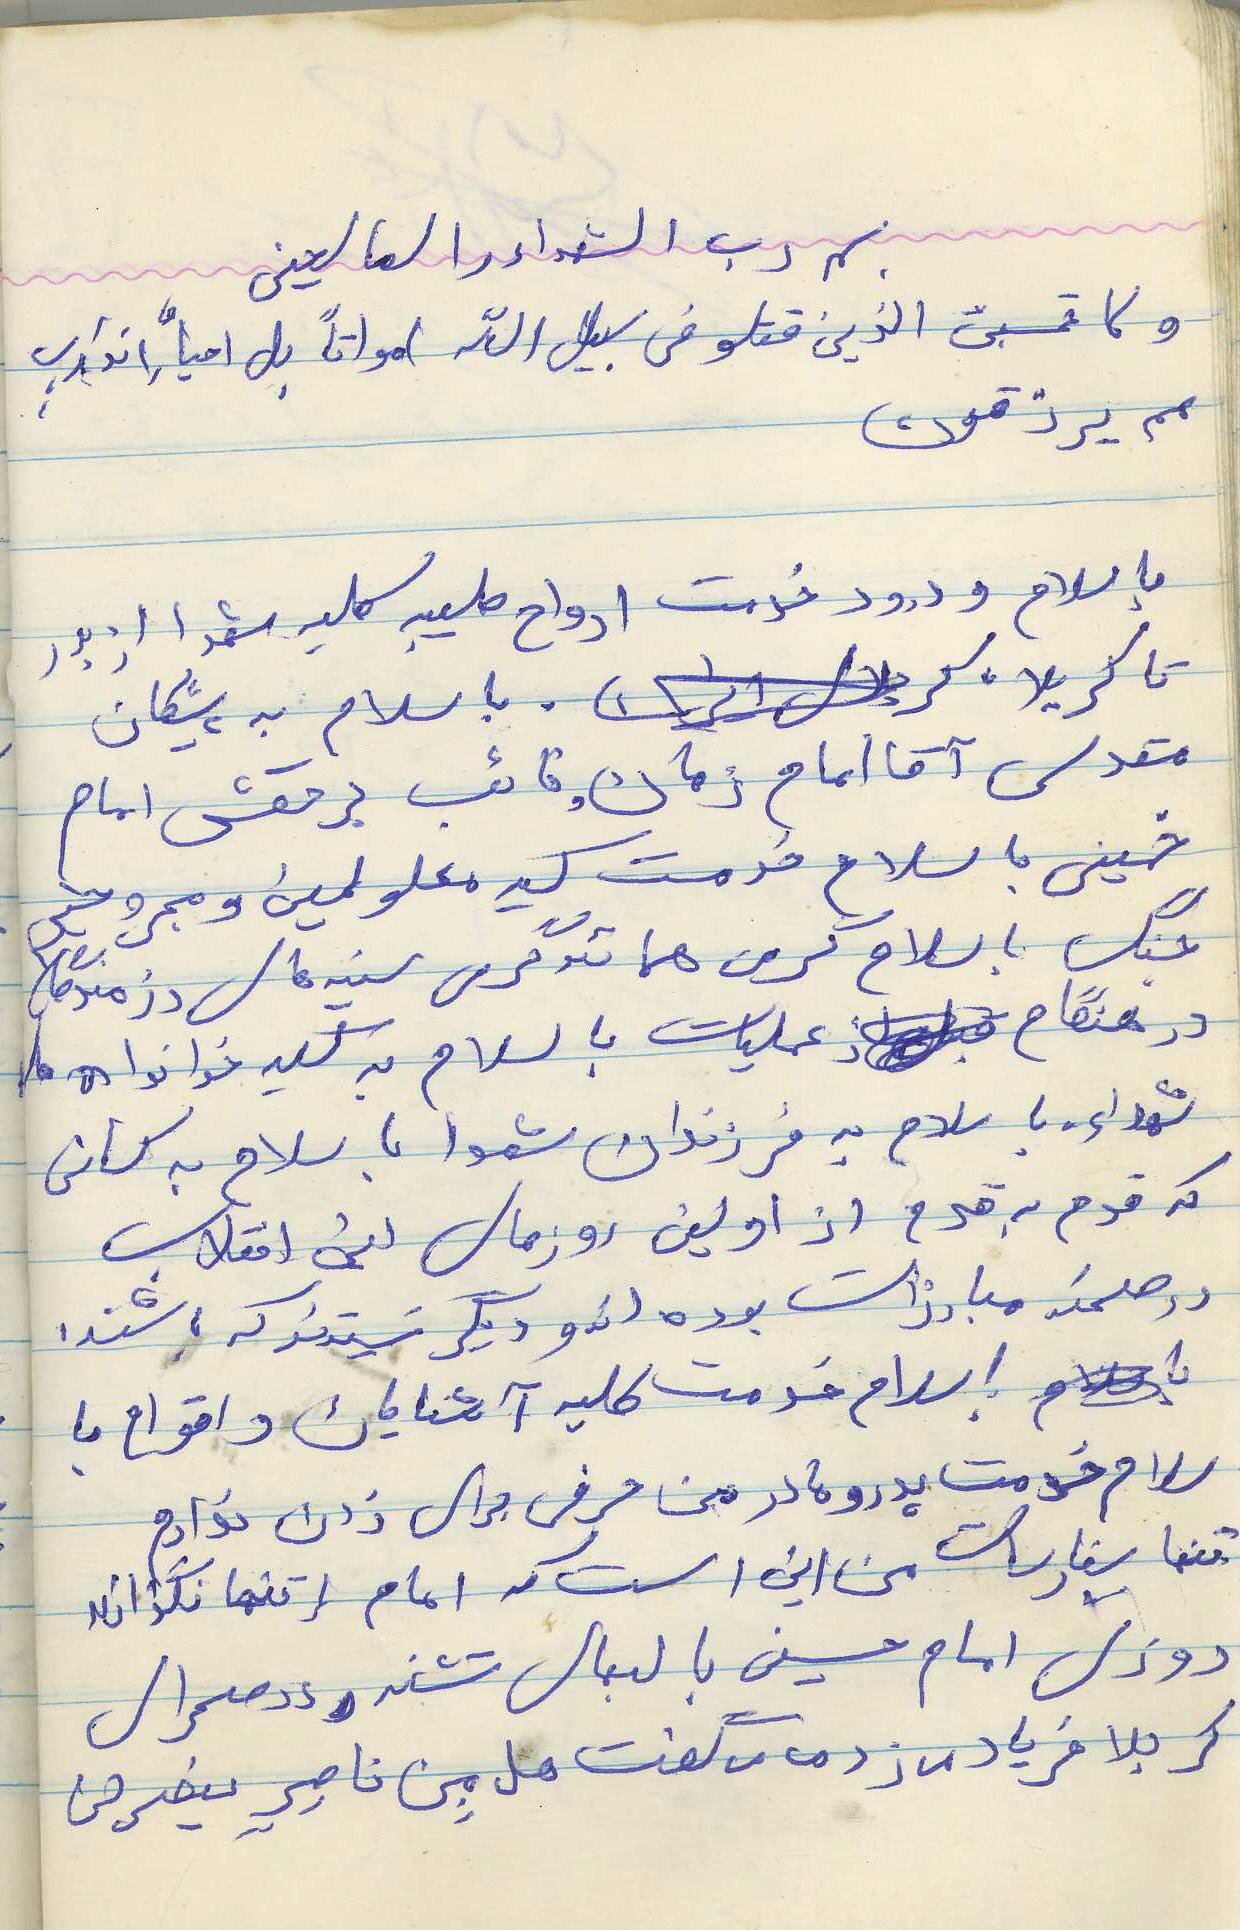 بسم رب الشهداء و الصالحین
و لا تحسبن الذین قتلو فی سبیل الله امواتاً بل احیاءٌ عند رب
هم یرزقون
با سلام و درود خدمت ارواح طیبه کلیه شهدا از بدر
تا کربلا کربلای ایران . با سلام به پیشگاه
مقدس آقا امام زمان و نائب برحقش امام
خمینی با سلام خدمت کلیه معلولین و مجروحین
جنگ با سلام گرمی همانند گرمی سینه های رزمندگان
در هنگام عملیات با سلام به کلیه خانواده های
شهداء. با سلام به فرزندان شهدا با سلام به کسانی
که قدم به قدم از اولین روزهای این انقلاب
در صحنه مبارزات بوده اند و دیگر نیستند که باشند.
با سلام با سلام خدمت کلیه آشنایان و اقوام با
سلام خدمت پدر و مادر من حرفی برای زدن ندارم
تنها سفارشات من این است که امام را تنها نگذارند
روزی امام حسین با لبهای تشنه در صحرای
کربلا فریاد می زد می گفت هل من ناصرٍ ینصرنی